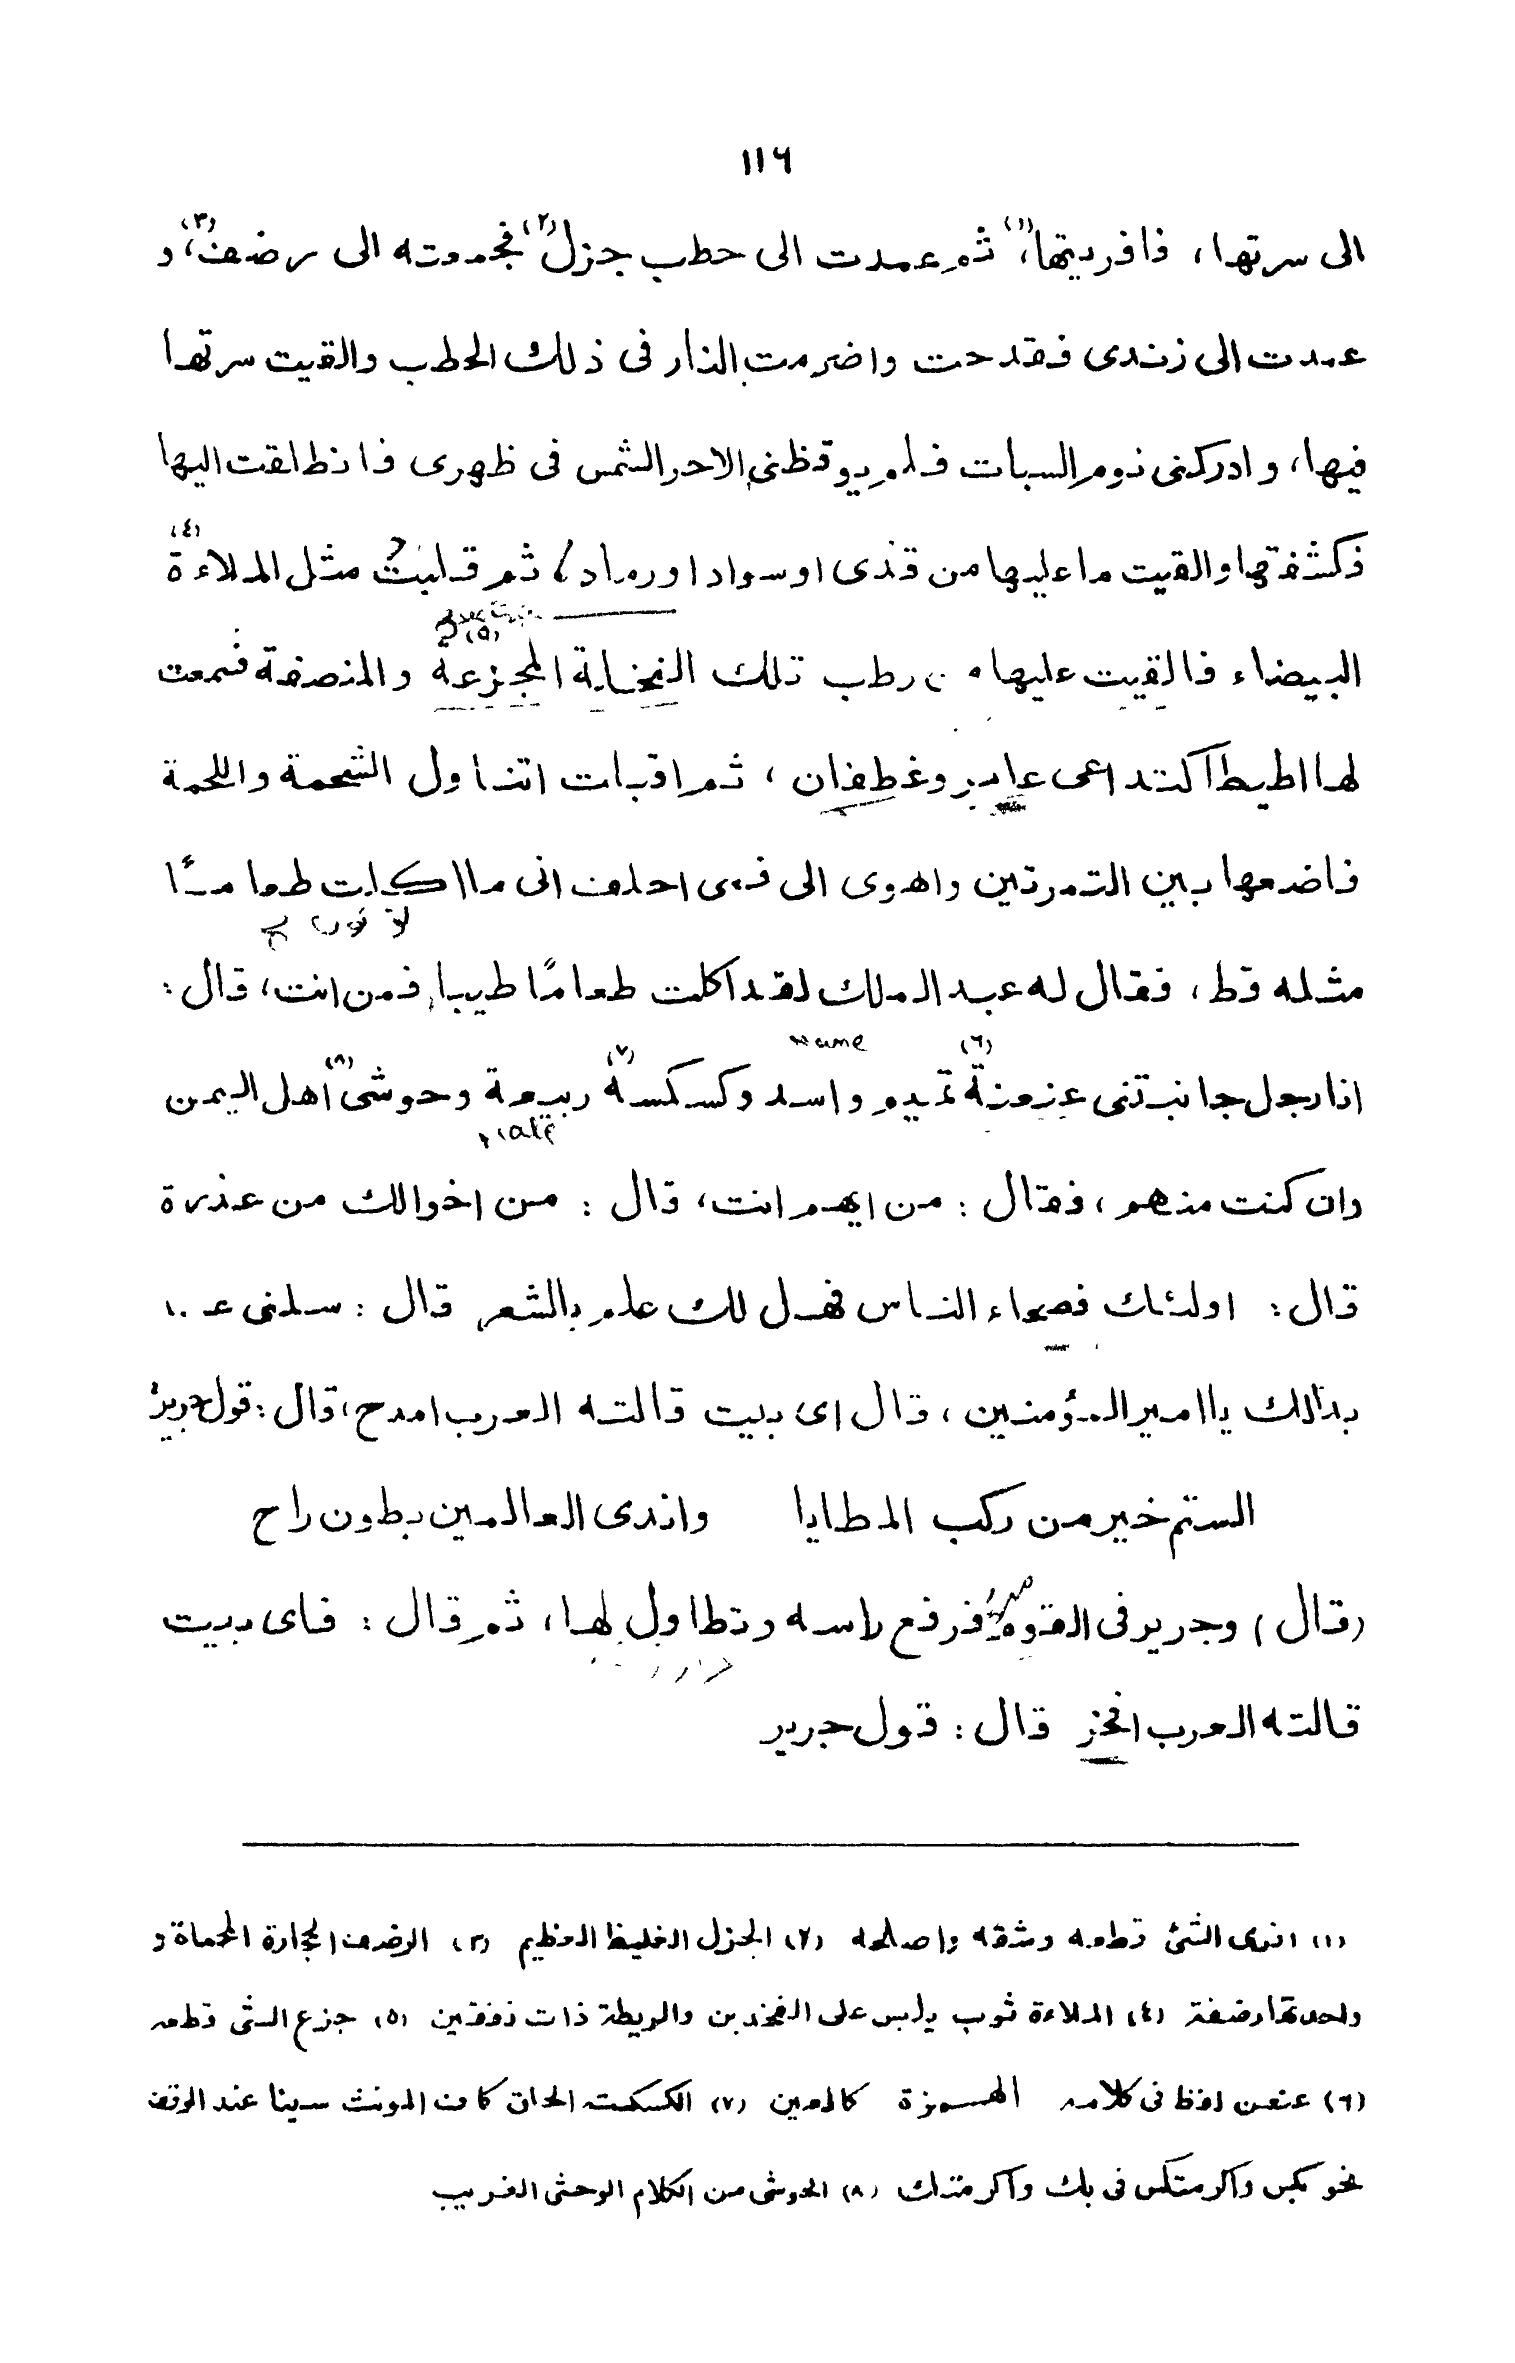 ١١٦
الى سرتها، فافريتها(١)، ثم عمدت الى حطب جزل(٢) فجمعته الى رضف(٣)، و
عمدت الى زندى فقدحت واضرمت النار فى ذلك الحطب والقيت سرتها
فيها، وادركنى نوم السبات فلم يوقظنى الا حر الشمس فى ظهرى فانطلقت اليها
فكشفتها والقيت ما عليها من قذى او سواد او رماد، ثم قلبت مثل الملاءة(٤)
البيضاء فالقيت عليها من رطب تلك النخلة المجزعة(٥) والمنصفة فسمعت
لها اطيطا كتداعى عامر وغطفان، ثم اقبلت اتناول الشحمة واللحمة
فاضعها بين التمرتين واهوى الى فمى احلف انى ما اكلت طعاما
مثله قط، فقال له عبد الملك لقد اكلت طعامًا طيبا، فمن انت، قال:
name
انا رجل جانبتنى عنعنة(٦) تميم واسد وكسكسة(٧) ربيعة وحوشى(٨) اهل اليمن
وان كنت منهم، فقال: من ايهم انت، قال: من اخوالك من عذرة
قال: اولئك فصحاء الناس فهل لك علم بالشعر قال: سلنى عما
بدالك يا امير المؤمنين، قال اى بيت قالته العرب امدح، قال: قول جرير
الستم خير من ركب المطايا واندى العالمين بطون راح
(قال) وجرير فى القوم فرفع راسه وتطاول لها، ثم قال: فاى بيت
قالته العرب افخر قال: قول جرير
(١) افرى الشئ قطعه وشقه واصلحه (٢) الجزل الغليظ العظيم (٣) الرضف الحجارة المحماة و
واحدتها رضفة (٤) الملاءة ثوب يلبس على الفخذين والريطة ذات لفقين (٥) جزع الشى قطعه
(٦) عنعن لفظ فى كلامه الهمزة كالعين (٧) الكسكسة الحاق كاف المونث سينا عند الوقف
نحو بكس واكرمتكس فى بك واكرمتك (٨) الحوشى من الكلام الوحشى الغريب